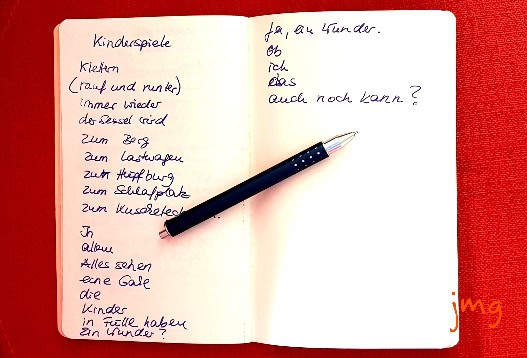 Kinderspiele
Klettern
(rauf und runter)
immer wieder
der Sessel wird
zum Berg
zum Lastwagen
zur Hüpfburg
zum Schlafplatz
zum
In
allem
Alles sehen
eine Gabe
die
Kinder
in Fülle haben
ein Wunder?
Ja, ein Wunder.
Ob
ich
das
auch noch kann?
jmg